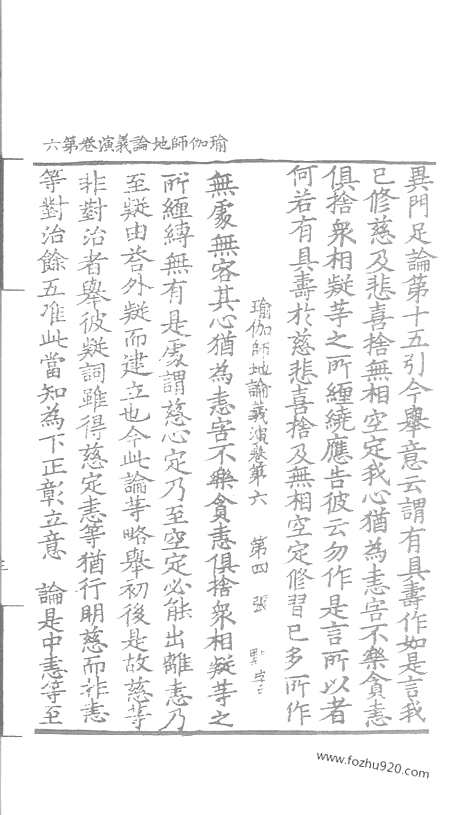 瑜伽師地論義演卷第六
異門足論第十五引今舉意云謂有具壽作如是言我
已修慈及悲喜捨無相空定我心猶為恚害不樂貪恚
俱捨眾相疑等之所纏繞應告彼云勿作是言所以者
何若有具壽於慈悲喜捨及無相空定修習已多所作
瑜伽師地論義演卷第六 第四張
無處無容其心猶為恚害不樂貪恚俱捨眾相疑等之
所纏縛無有是處謂慈心定乃至空定必能出離恚乃
至疑由答外疑而建立也今此論等略舉初後是故慈等
非對治者舉彼疑詞雖得慈定恚等猶行明慈而非恚
等對治餘五准此當知為下正彰立意 論是中恚等至
www.fozhu920.com